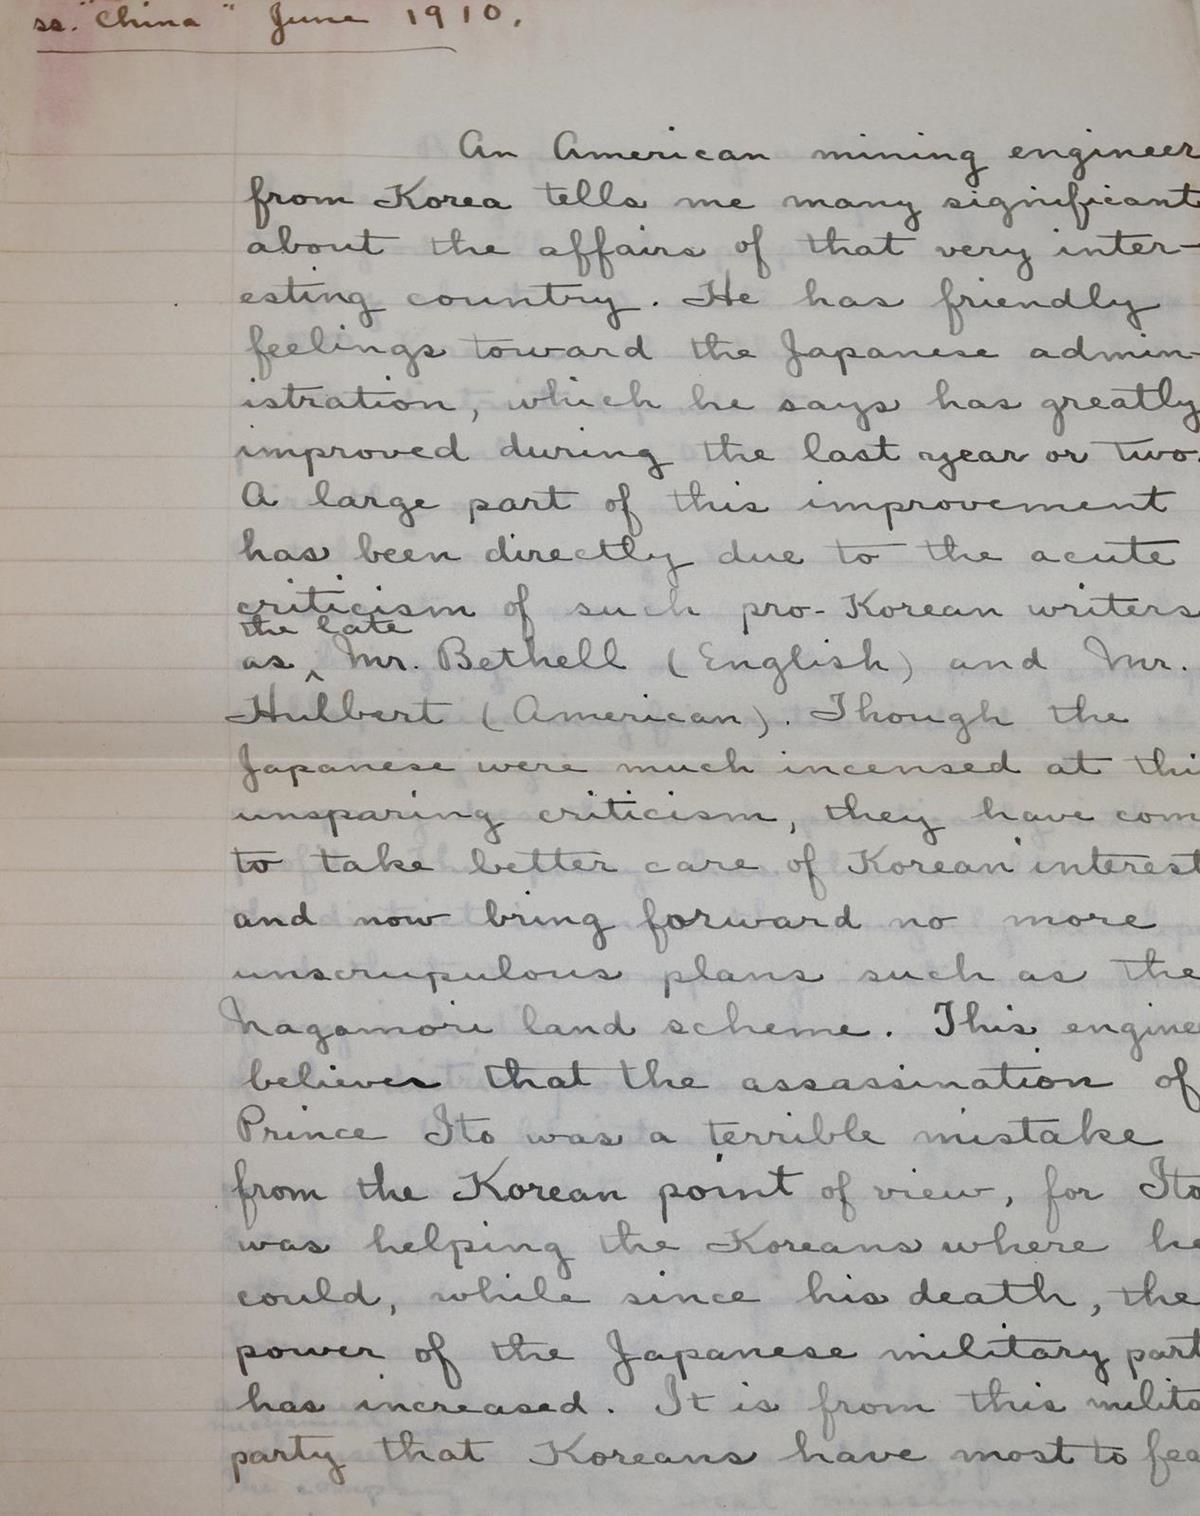 ss. "China" June 1910.
An American mining engineer
from Korea tells me many significant
about the affairs of that very inter-
esting country. He has friendly
feelings toward the Japanese admin-
istration, which he says has greatly
improved during the last year or two.
A large part of this improvement
has been directly due to the acute
criticism of such pro-Korean writers
the late
as ^ Mr. Bethell (English) and Mr.
Hulbert (American). Though the
Japanese were much incensed at thi
unsparing criticism, they have com
to take better care of Korean interest
and now bring forward no more
unscrupulous plans such as the
Nagamori land scheme. This enginee
believes that the assassination of
Prince Ito was a terrible mistake
from the Korean point of view, for Ito
was helping the Koreans where he
could, while since his death, the
power of the Japanese military part
has increased. It is from this milita
party that Koreans have most to fea